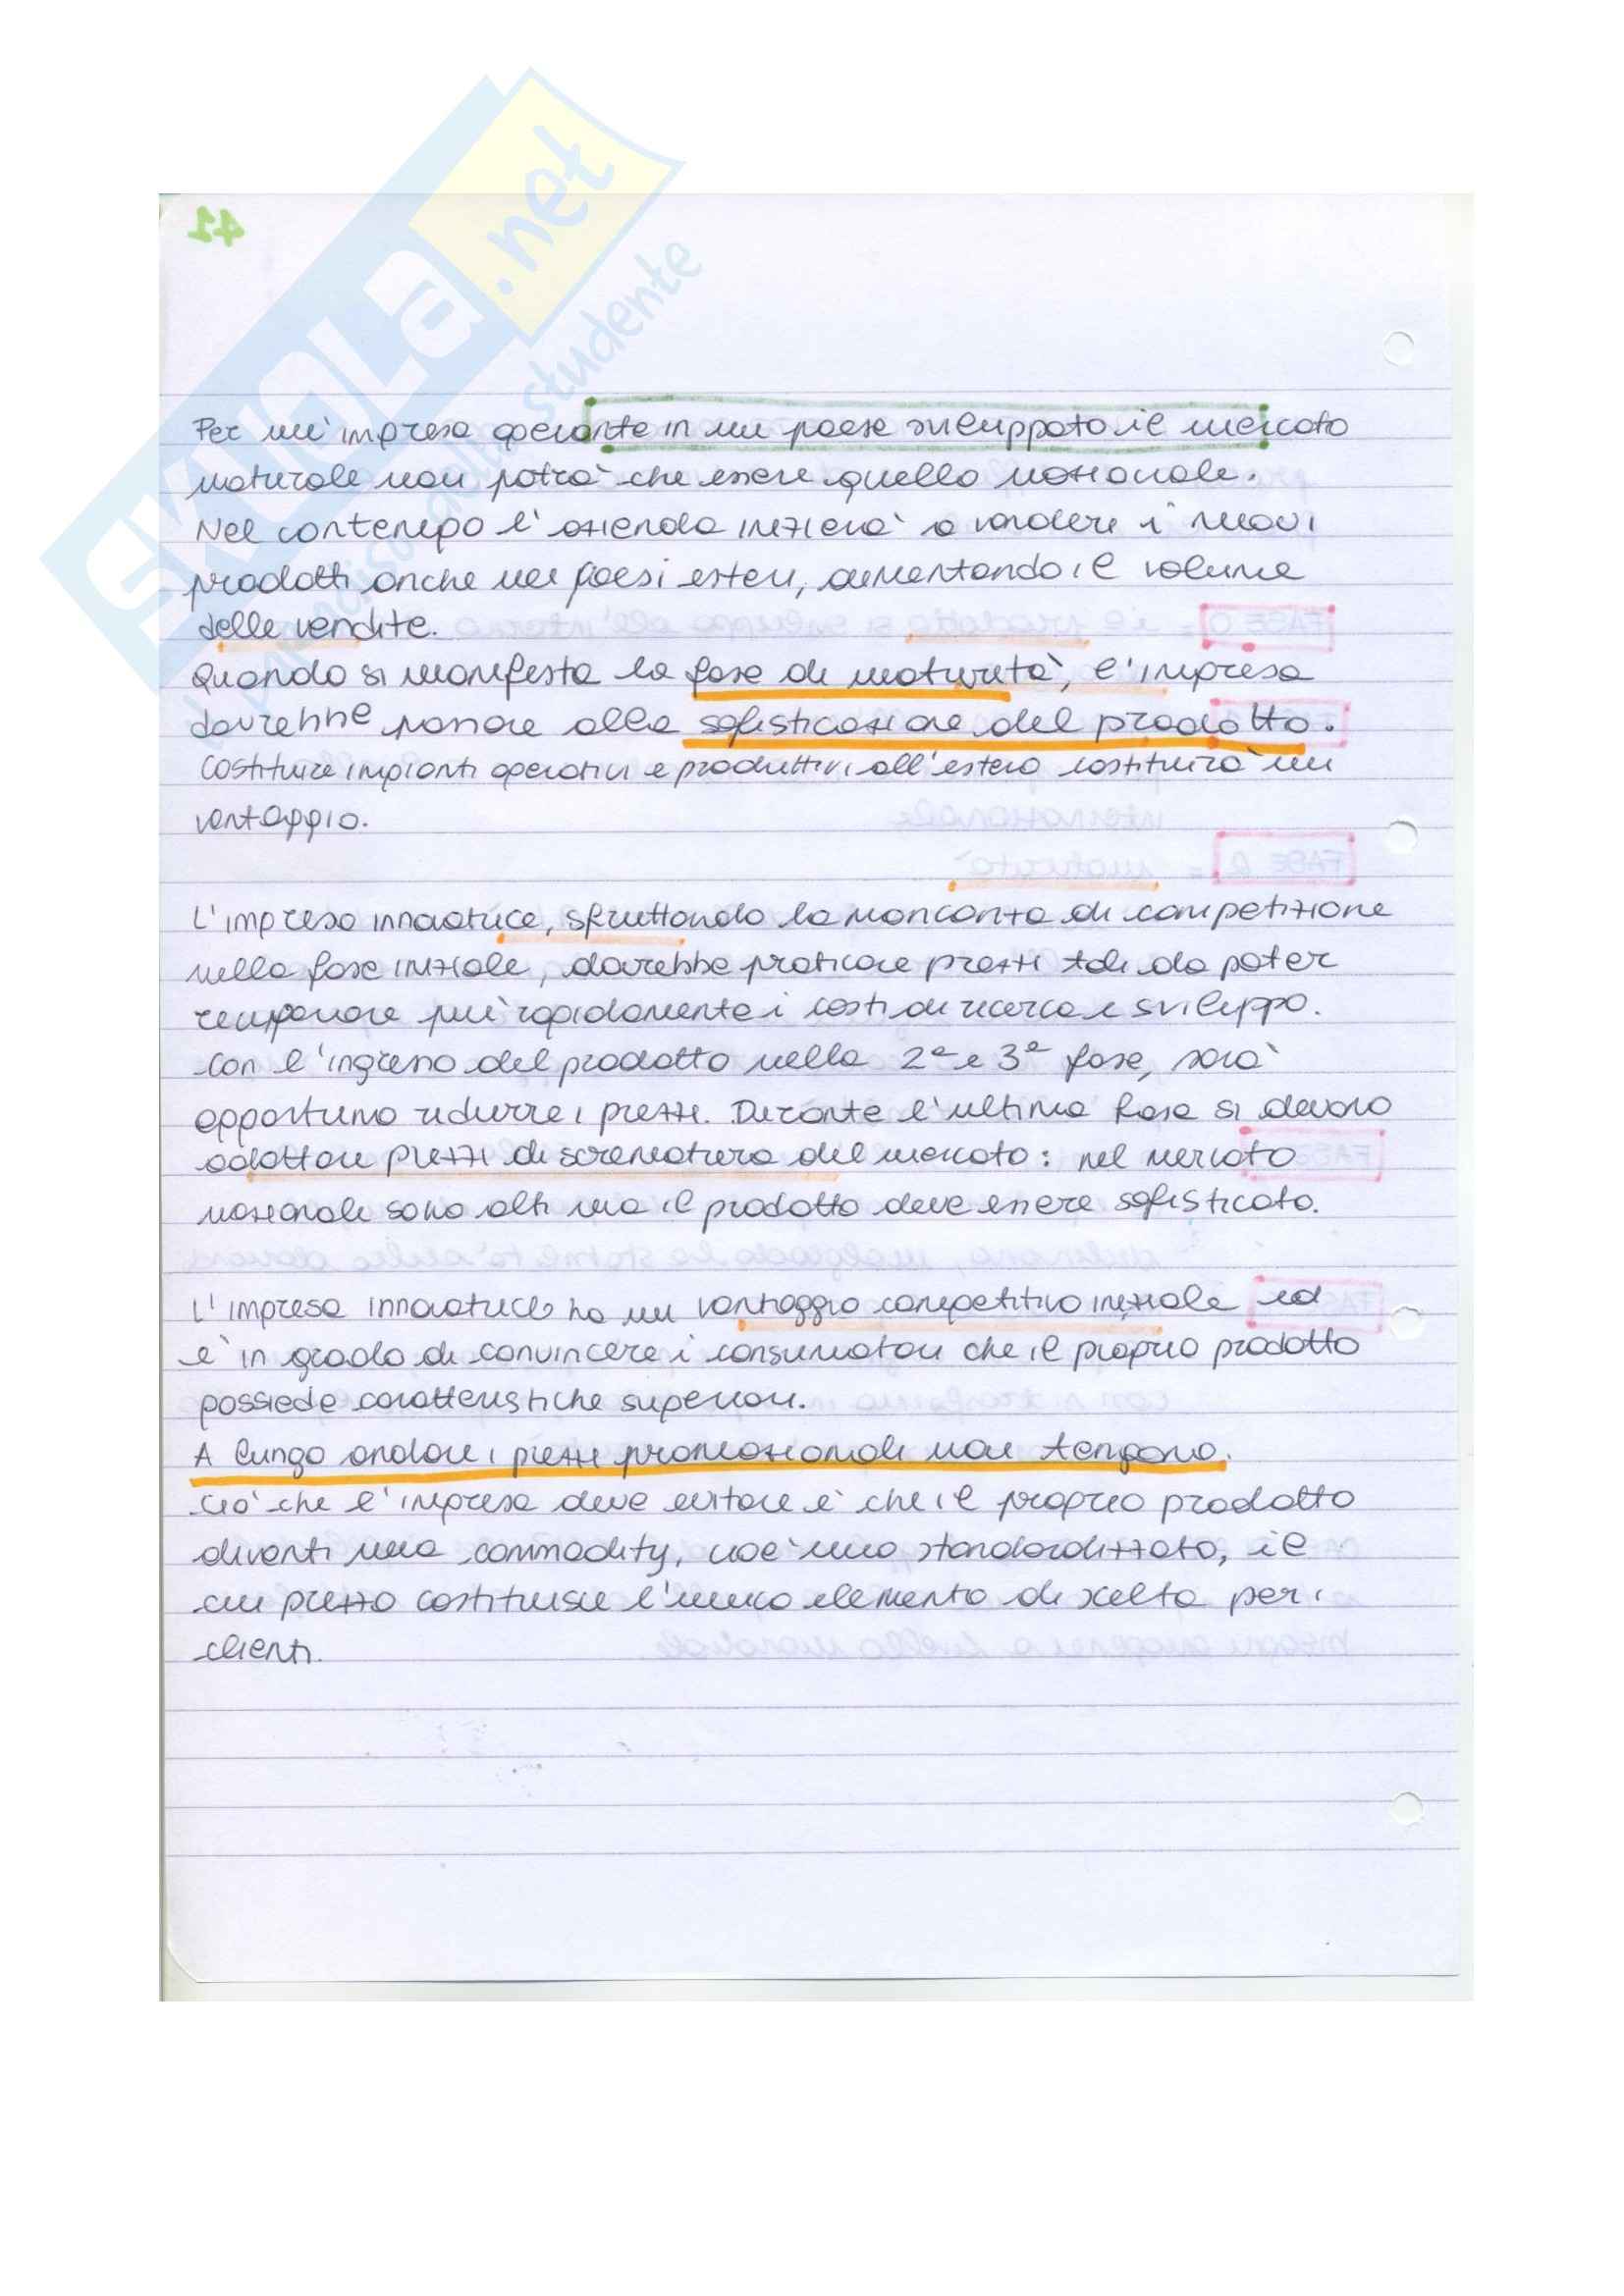 41
SKUOLA.net
Il paradiso dello studente
Per un'impresa operante in un paese sviluppato il mercato
naturale non potrà che essere quello nazionale.
Nel contempo l'azienda inizierà a vendere i nuovi
prodotti anche nei paesi esteri, aumentando il volume
delle vendite.
Quando si manifesta la fase di maturità, l'impresa
dovrebbe pensare alla sofisticazione del prodotto.
Costituire impianti operativi e produttivi all'estero costituirà un
vantaggio.
L'impresa innovatrice, sfruttando la mancanza di competizione
nella fase iniziale, dovrebbe praticare prezzi tali da poter
recuperare più rapidamente i costi di ricerca e sviluppo.
Con l'ingresso del prodotto nella 2ª e 3ª fase, sarà
opportuno ridurre i prezzi. Durante l'ultima fase si devono
adottare prezzi di scrematura del mercato: nel mercato
nazionale sono alti ma il prodotto deve essere sofisticato.
L'impresa innovatrice ha un vantaggio competitivo iniziale ed
è in grado di convincere i consumatori che il proprio prodotto
possiede caratteristiche superiori.
A lungo andare i prezzi promozionali non tengono.
Ciò che l'impresa deve evitare è che il proprio prodotto
diventi una commodity, cioè uno standardizzato, il
cui prezzo costituisce l'unico elemento di scelta per i
clienti.